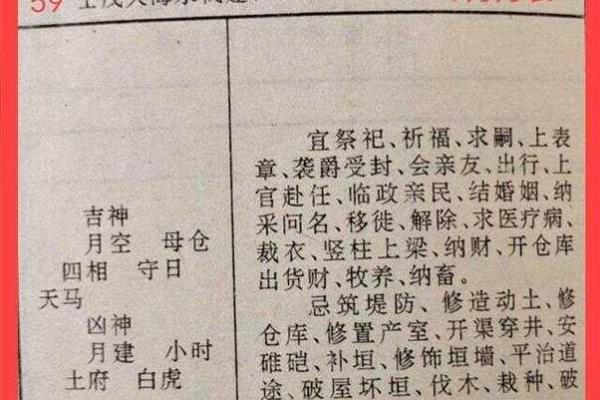 59 壬戌大海水执
宜祭祀、祈福、求嗣、上表
章、袭爵受封、会亲友、出行、上
官赴任、临政亲民、结婚姻、纳
采问名、移徙、解除、求医疗病、
裁衣、竖柱上梁、纳财、开仓库
出货财、牧养、纳畜。
忌筑堤防、修造动土、修
仓库、修置产室、开渠穿井、安
碓硙、补垣、修饰垣墙、平治道
途、破屋坏垣、伐木、栽种、破
吉神
月空 母仓
四相 守日
天马
凶神
月建 小时
土府 白虎